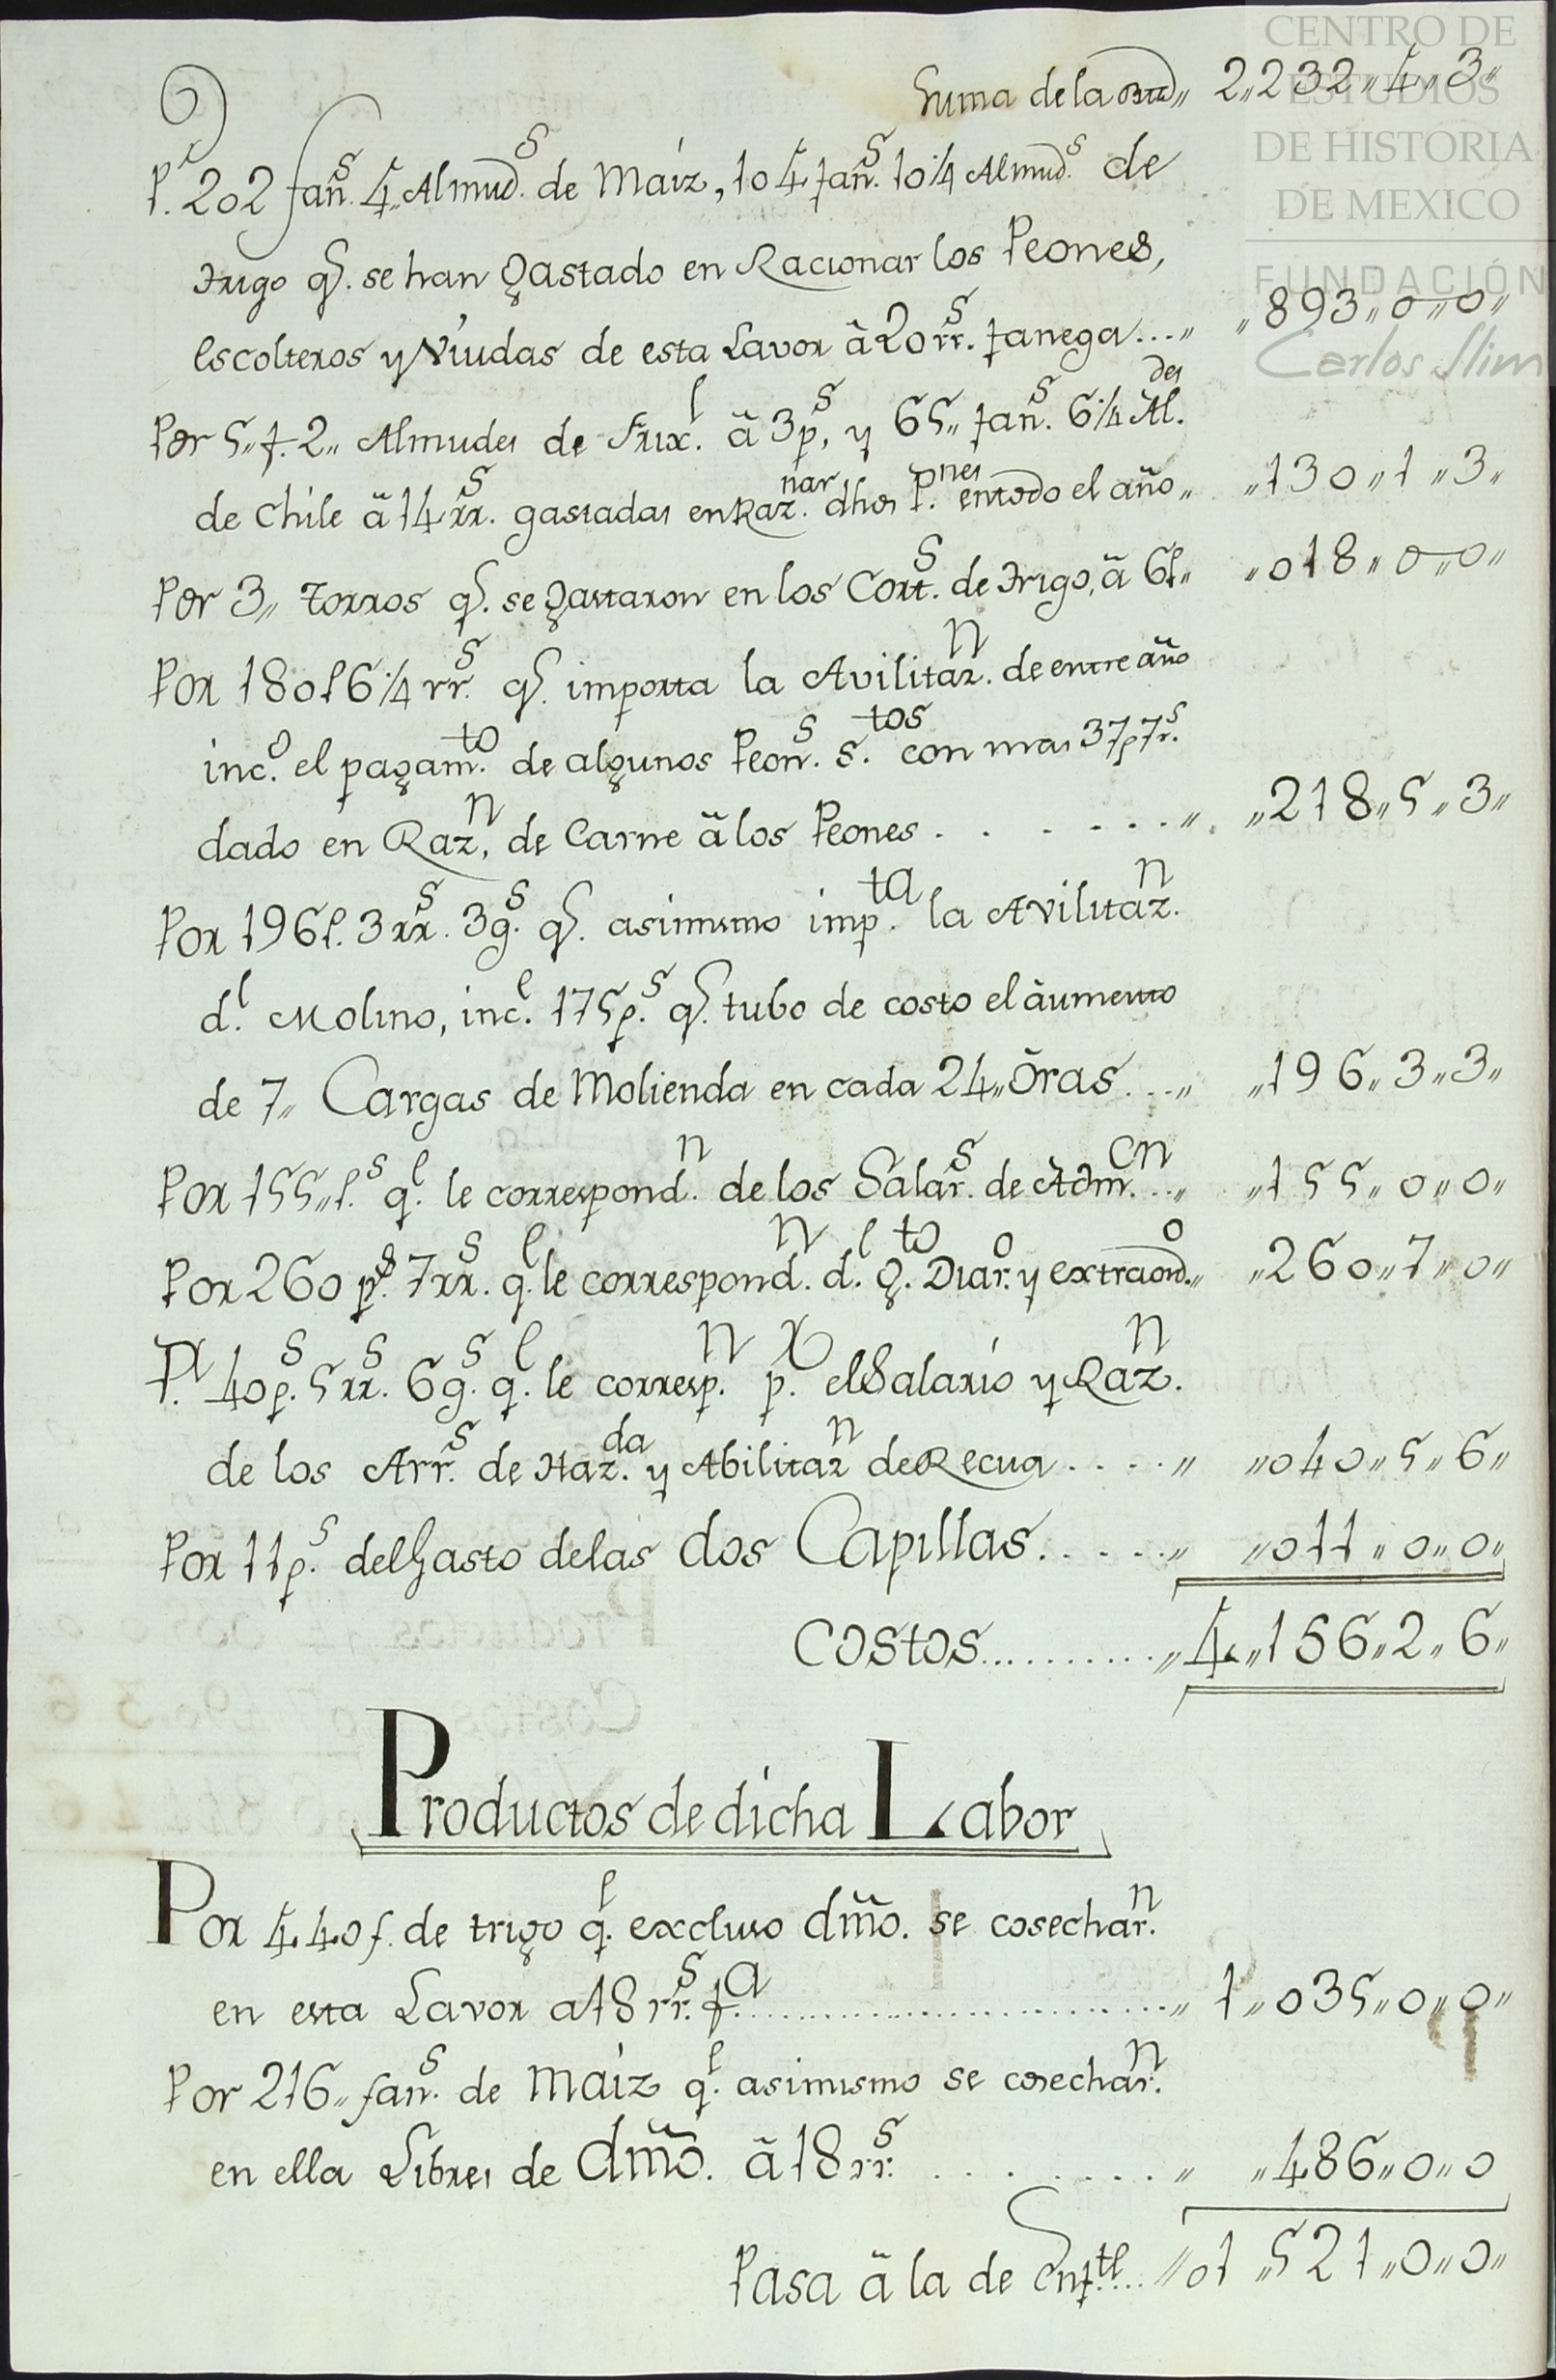 CENTRO DE
ESTUDIOS
DE HISTORIA
DE MEXICO
FUNDACIÓN
Carlos Slim
Suma de la Bta,, 2,,232,,4,,3,,
P.r 202 fan.s 4,, Almud.s de Maiz, 104 fan.s 10 1/4 Almud.s de
Trigo q.e se han gastado en Racionar los Peones,
Escolteros y Viudas de esta Lavor â 20 rr.s fanega...,, ,,893,,0,,0,,
Por 5,, f. 2,, Almudes de Frix.l â 3 p.s, y 65,, fan.s 6 1/4 Al.des
de Chile â 14 rr.s gastadas en Raz.nar dhos P.nes en todo el año,, ,,130,,1,,3,,
Por 3,, Torros q.e se gastaron en los Cort.s de Trigo, â 6 p,, ,,018,,0,,0,,
Por 180 p 6 1/4 rr.s q.e importa la Avilitaz.n de entre año
inc.o el pagam.to de algunos Peon.s S.tos con mas 37 p 7 r.s
dado en Raz.n, de Carne â los Peones . . . . . . ,,. ,,218,,5,,3,,
Por 196 p. 3 rr.s 3 g.s q.e asimismo imp.ta la Avilitaz.n
d.l Molino, inc.e 175 p.s q.e tubo de costo el âumento
de 7,, Cargas de Molienda en cada 24,, ôras....,, ,,196,,3,,3,,
Por 155,, p.s q.e le correspond.n de los Salar.s de Adm.cn...,, ,,155,,0,,0,,
Por 260 p.s 7 rr.s q.e le correspond.n d.l g.to Diar.o y extraord.o,, ,,260,,7,,0,,
P.r 40 p.s 5 rr.s 6 g.s q.e le corresp.n p.r el Salario y Raz.n
de los Arr.s de Haz.da y Abilitaz.n de Recua . . . . ,, ,,040,,5,,6,,
Por 11 p.s del Gasto de las dos Capillas. . . . . ,, ,,011,,0,,0,,
Costos..........,, 4,,156,,2,,6,,
Productos de dicha Labor
Por 440 f. de trigo q.e excluso dmõ. se cosechar.n
en esta Lavor a 18 rr.s f.a..........................,, 1,,035,,0,,0,,
Por 216,, fan.s de Maiz q.e asimismo se cosechar.n
en ella Libres de dmõ. â 18 rr.s . . . . . . . . ,, ,,486,,0,,0
Pasa â la de Enf.te.... ,,01,,521,,0,,0,,